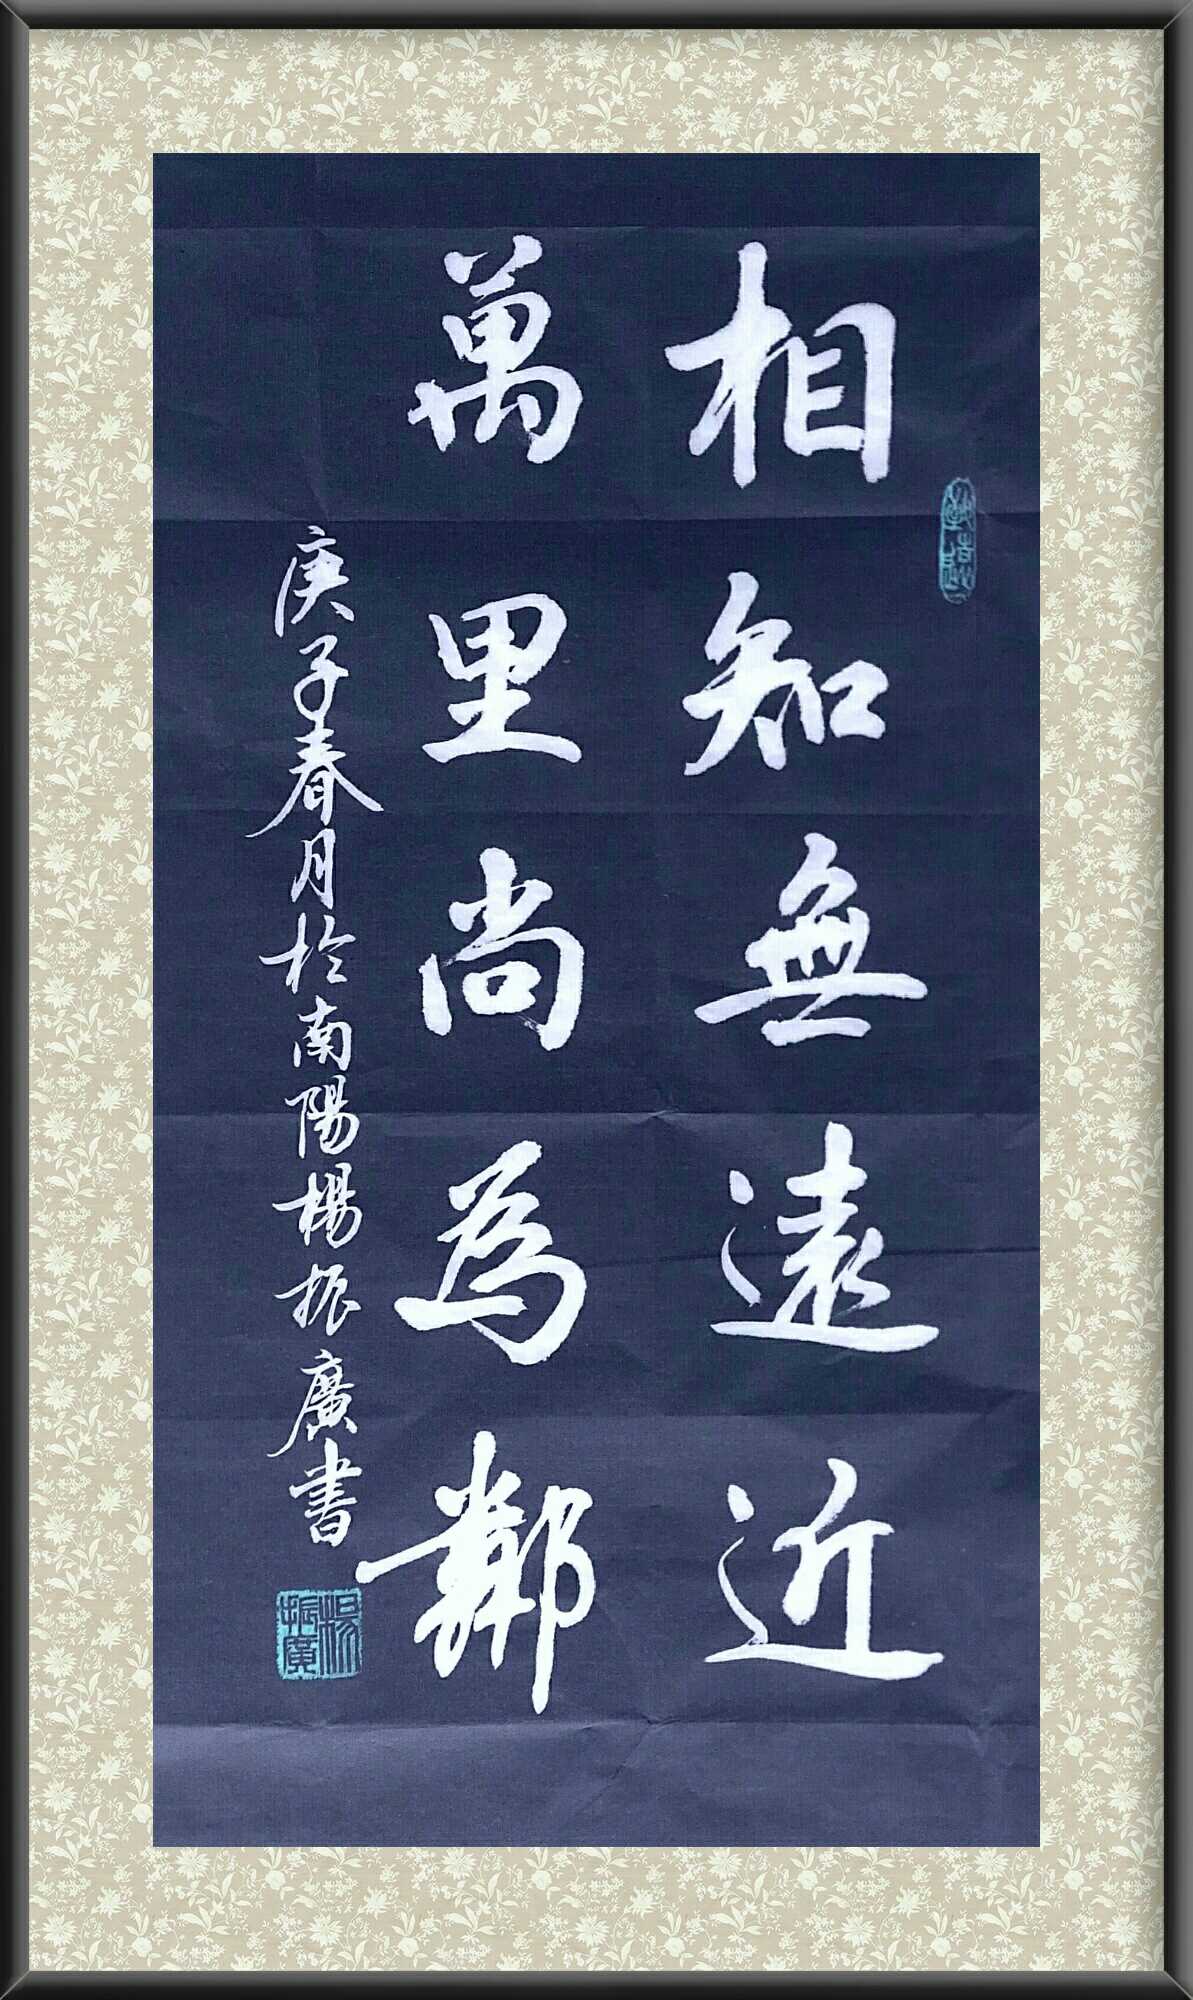 相知無遠近
萬里尚為鄰
庚子春月於南陽楊振廣書
楊振廣